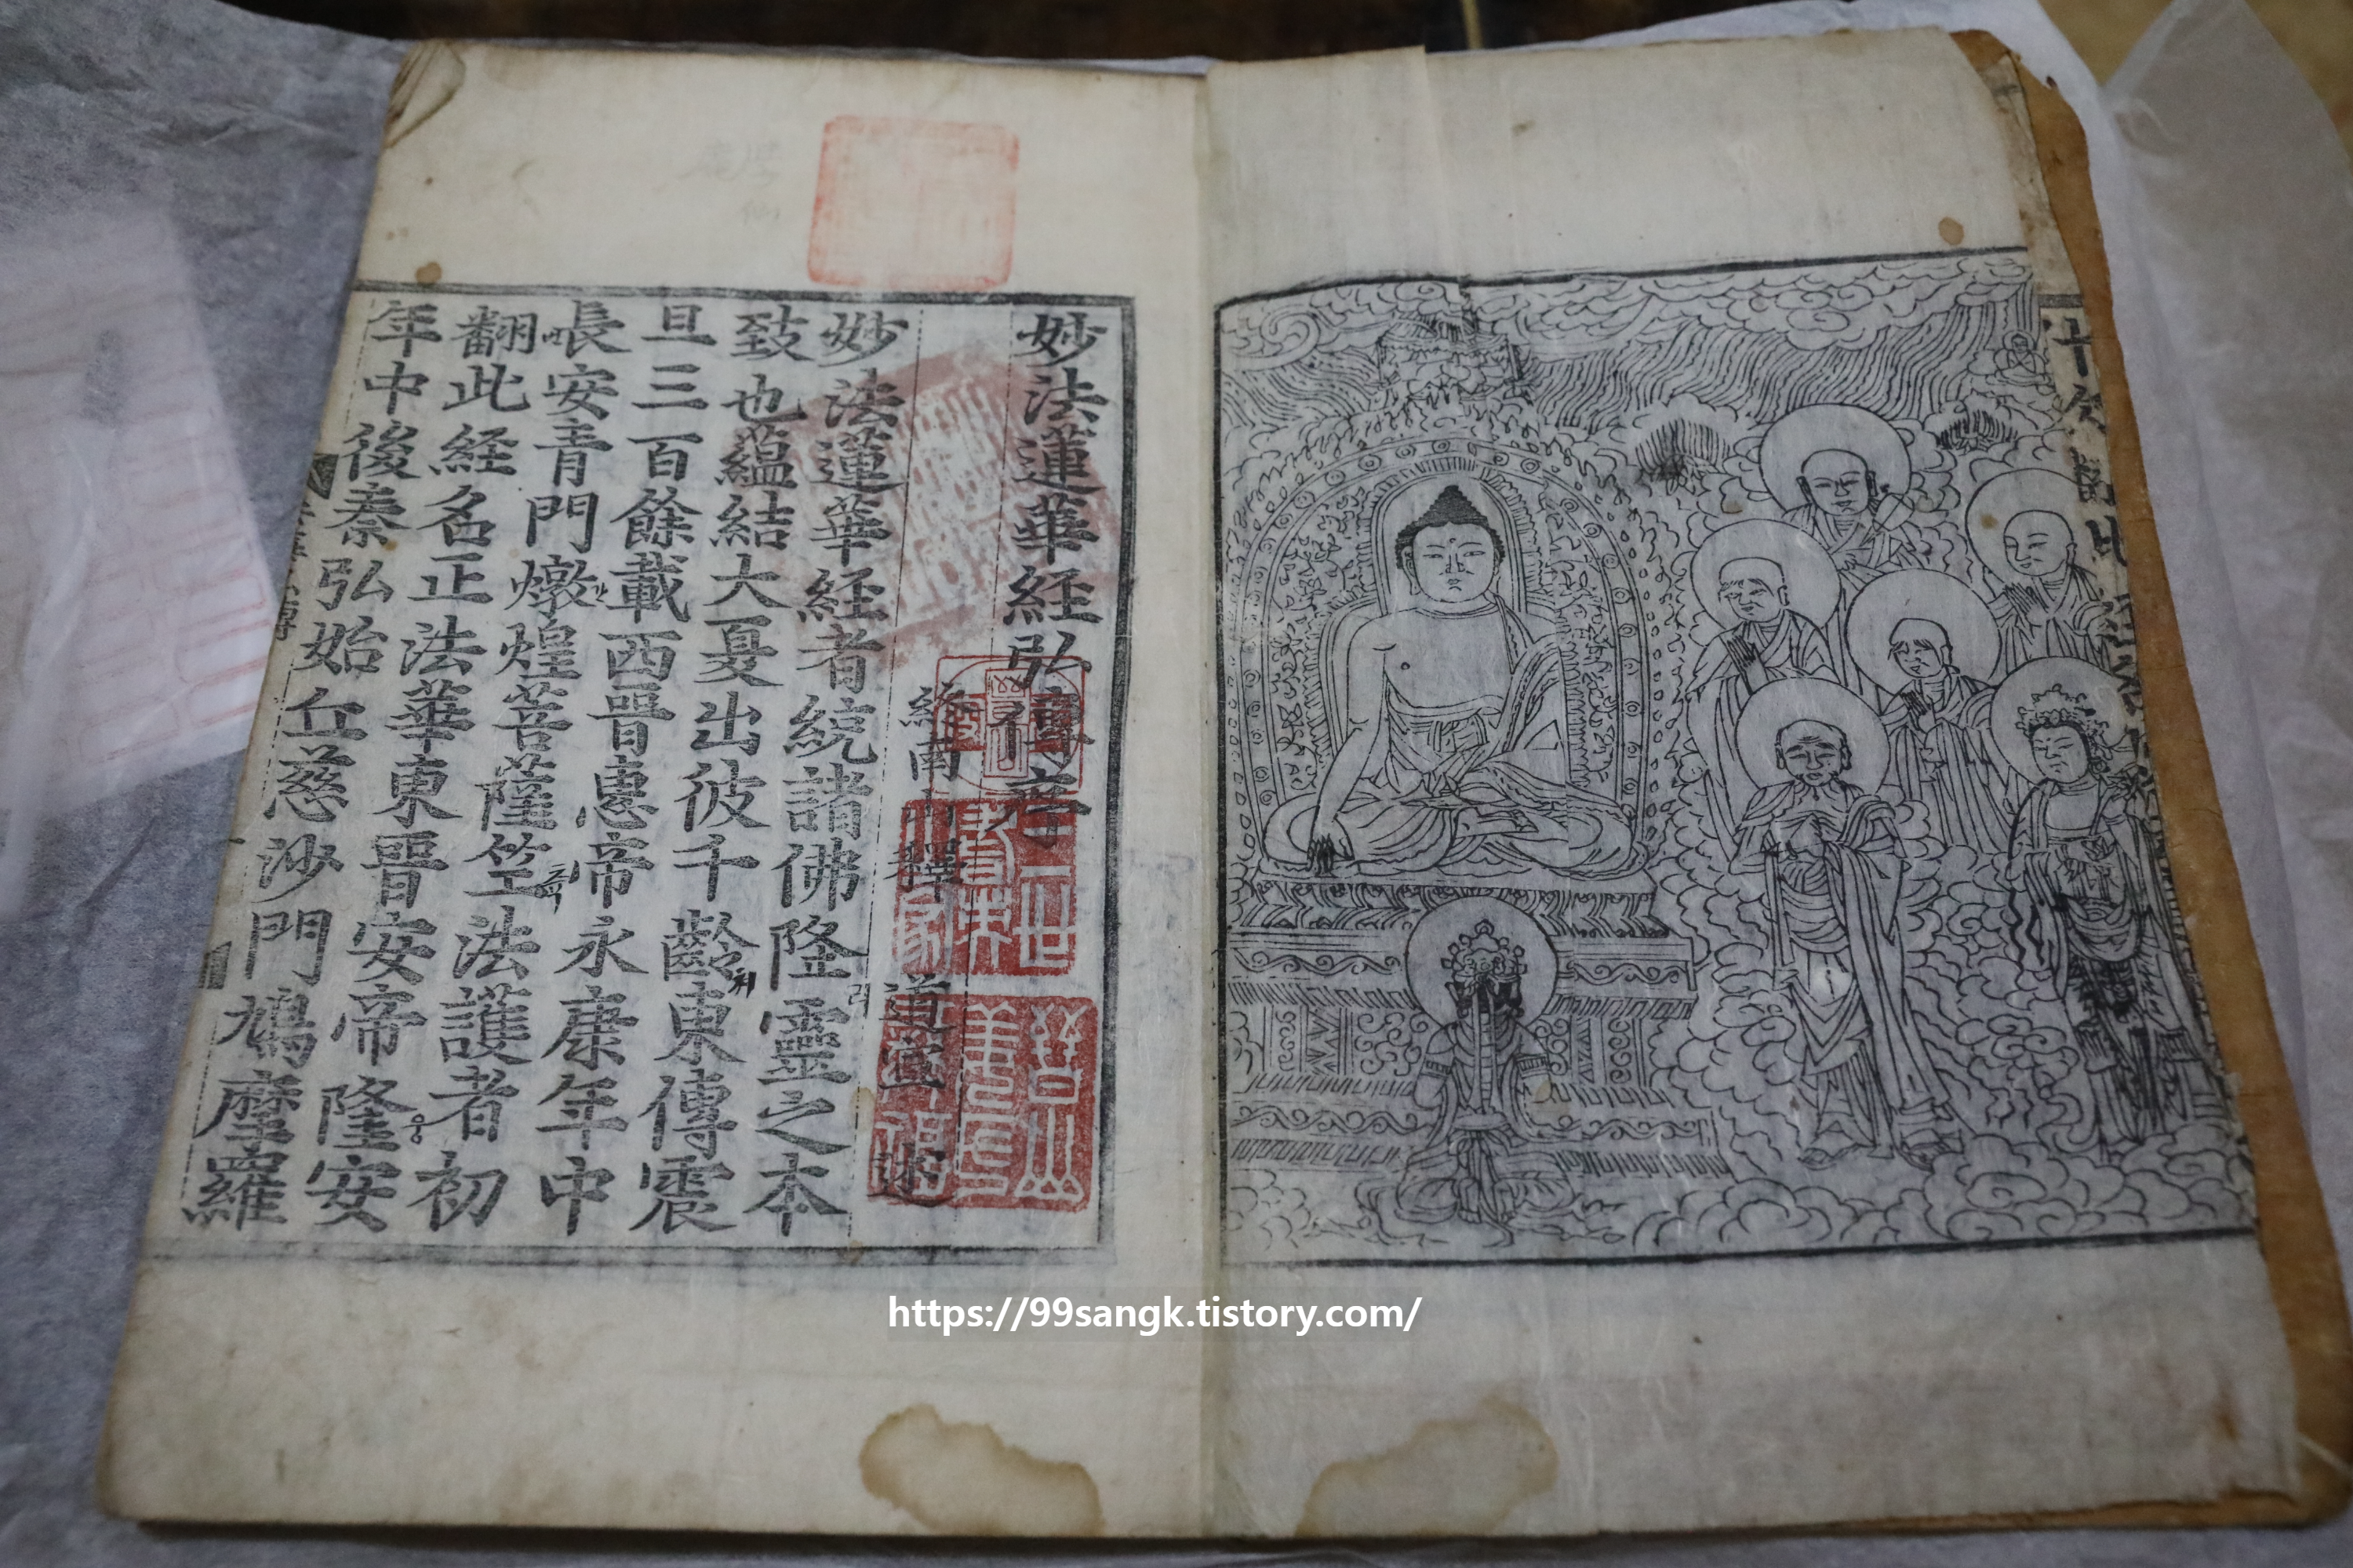 妙法蓮華経弘傳序
終南山釋 道宣 述
妙法蓮華経者統諸佛降靈之本
致也蘊結大夏出彼千齡東傳震
旦三百餘載西晉惠帝永康年中
長安青門燉煌菩薩竺法護者初
翻此経名正法華東晉安帝隆安
年中後秦弘始丘慈沙門鳩摩羅
https://99sangk.tistory.com/